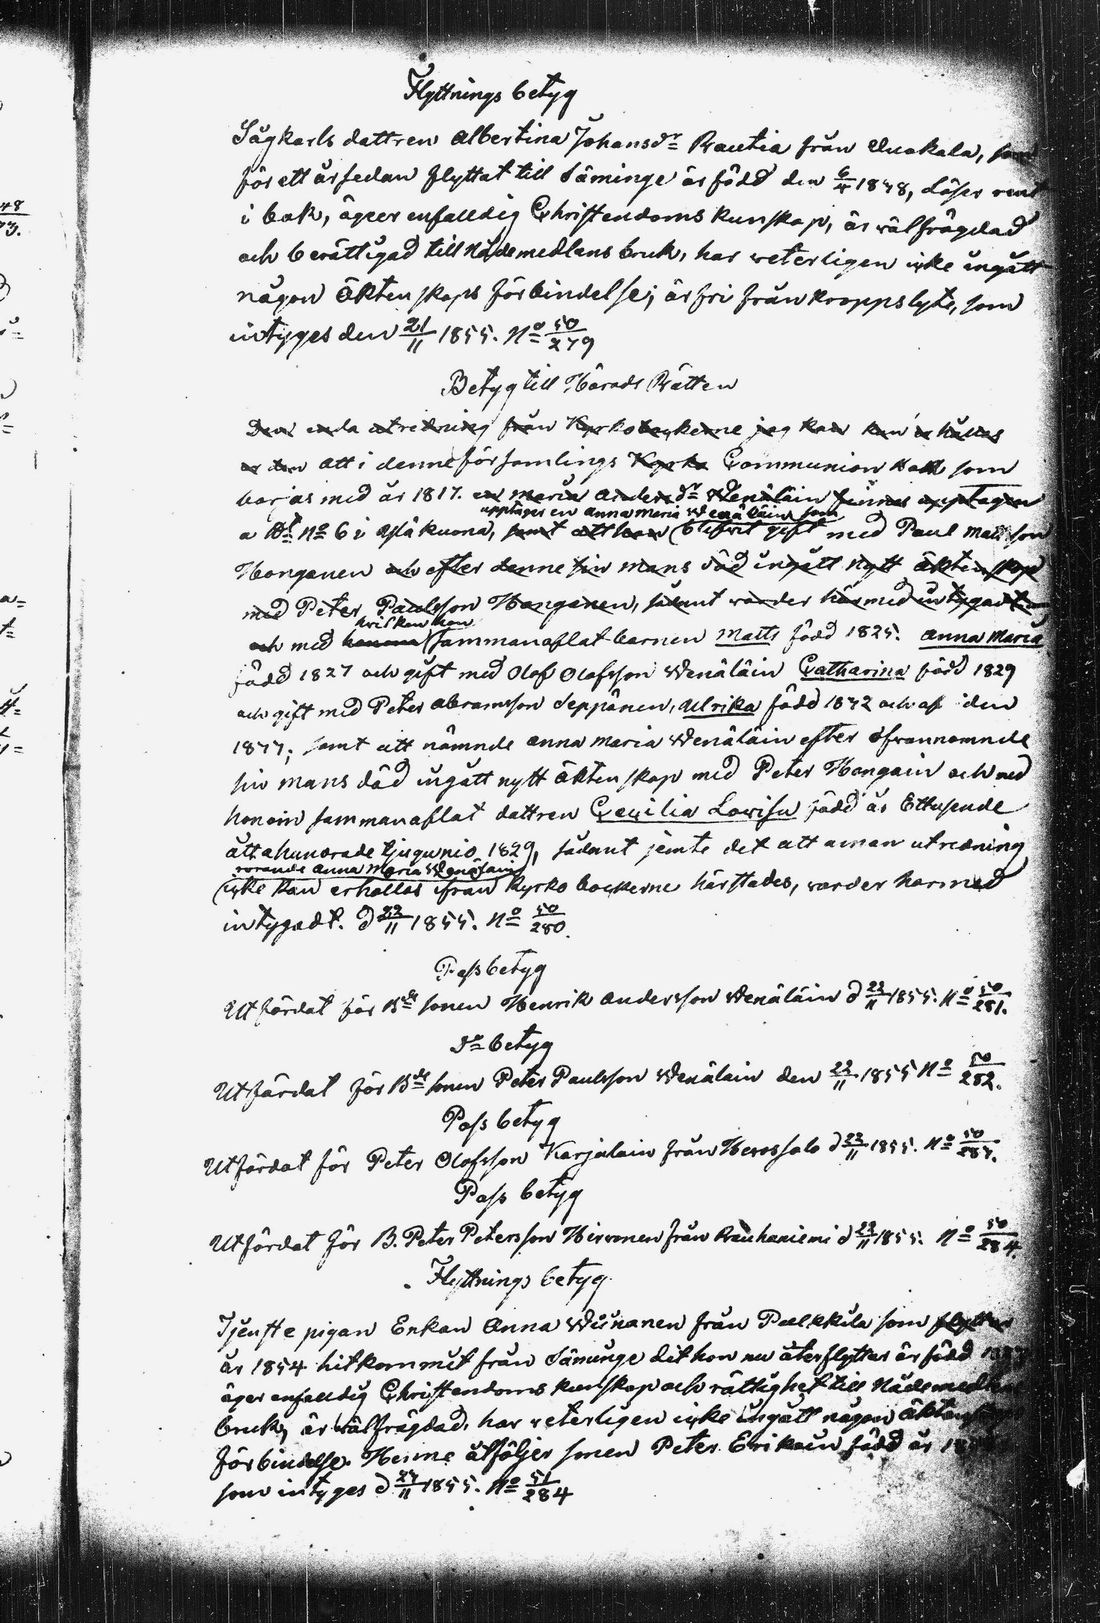 Flyttnings betyg
Sågkarls dottren Albertina Johansdr Rautia från Quokala, som
för ett år sedan flyttat till Säminge är född den 6/4 1838, Läser rent
i bok, äger enfalldig Christendoms kunskap, är välfrägdad
och berättigad till Nådemedlens bruk, har veterligen icke ingått
någon äktenskaps förbindelse; är fri från kroppslyte, som
intyges den 21/11 1855. No 50/279
Betyg till Härads Rätten
Den enda utredning från Kyrkobockerne jag kan kan erhållas
är den att i denne församlings Kyrko Communion Bok som
börjas med år 1817. en Maria Andersdr Wenäläin finnes upptagen
upptages en Anna Maria Wenäläin, som
a No 6 i Pläkuona, samt att hon blifvit gift med Paul Matsson
Honganen och efter denne sin mans död ingått nytt äktenskap
med Peter Paulsson Honganen, sådant varder härmed intygadt
hvilken hon
och med honom sammanaflat barnen Matts född 1825. Anna Maria
född 1827 och gift med Olof Olofsson Wenäläin Catharina född 1829
och gift med Peter Abramsson Seppänen, Ulrika född 1832 och af iden
samt att nämnde Anna Maria Wenäläin efter ofvannämnde
sin mans död ingått nytt äktenskap med Peter Hongain och med
honom sammanaflat dottren Cecilia Lovisa född år Ettusende
åttahundrade tjugunio 1829, sådant jemte det att annan utredning
rörande Anna Maria Wenäläin
icke kan erhållas ifrån Kyrko bockerne härstädes, varder härmed
intygadt. d 22/11 1855. No 50/280.
Pass betyg
Utfärdat för Bde sonen Henrik Andersson Wenäläin d 22/11 1855. No 50/281.
Do betyg
Utfärdat för Bde sonen Peter Paulsson Wenäläin den 22/11 1855 No 50/282.
Pass betyg
Utfärdat för Peter Olofsson Karjalain från d 22/11 1855. No
Pass betyg
Utfärdat för B. Peter Petersson Hirvonen från Rauhaniemi d 22/11 1855. No 50/284.
Flyttnings betyg
Tjenste pigan Enkan Anna från Pelkkila som flyttar
år 1854 hitkommit från Säminge dit hon nu återflyttar är född
äger enfalldig Christendoms kunskap och rättighet till Nådemedlens
bruk, är välfrägdad, har veterligen icke ingått någon äktenskaps
förbindelse. Henne åtföljer sonen Peter Erikain född år
som intyges d 24/11 1855. No 51/284